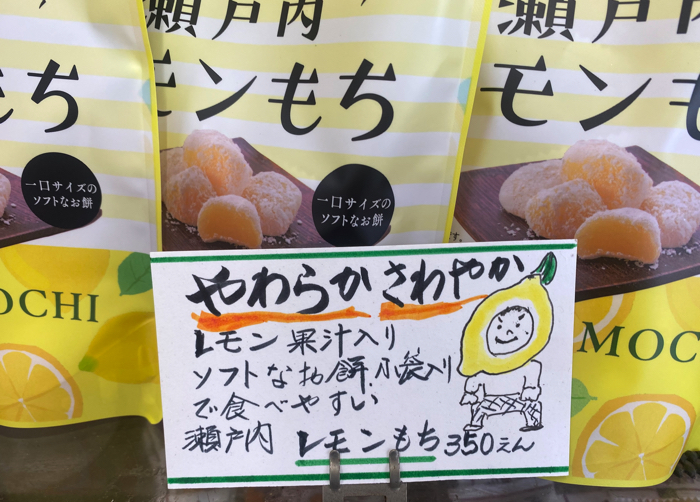 瀬戸内
レモンもち
一口サイズの
ソフトなお餅
MOCHI
瀬戸内
モンもち
一口サイズの
ソフトなお餅
瀬戸内
モンもち
MOCHI
やわらか さわやか
レモン果汁入り
ソフトなお餅.小袋入り
で食べやすい
瀬戸内 レモンもち 350えん